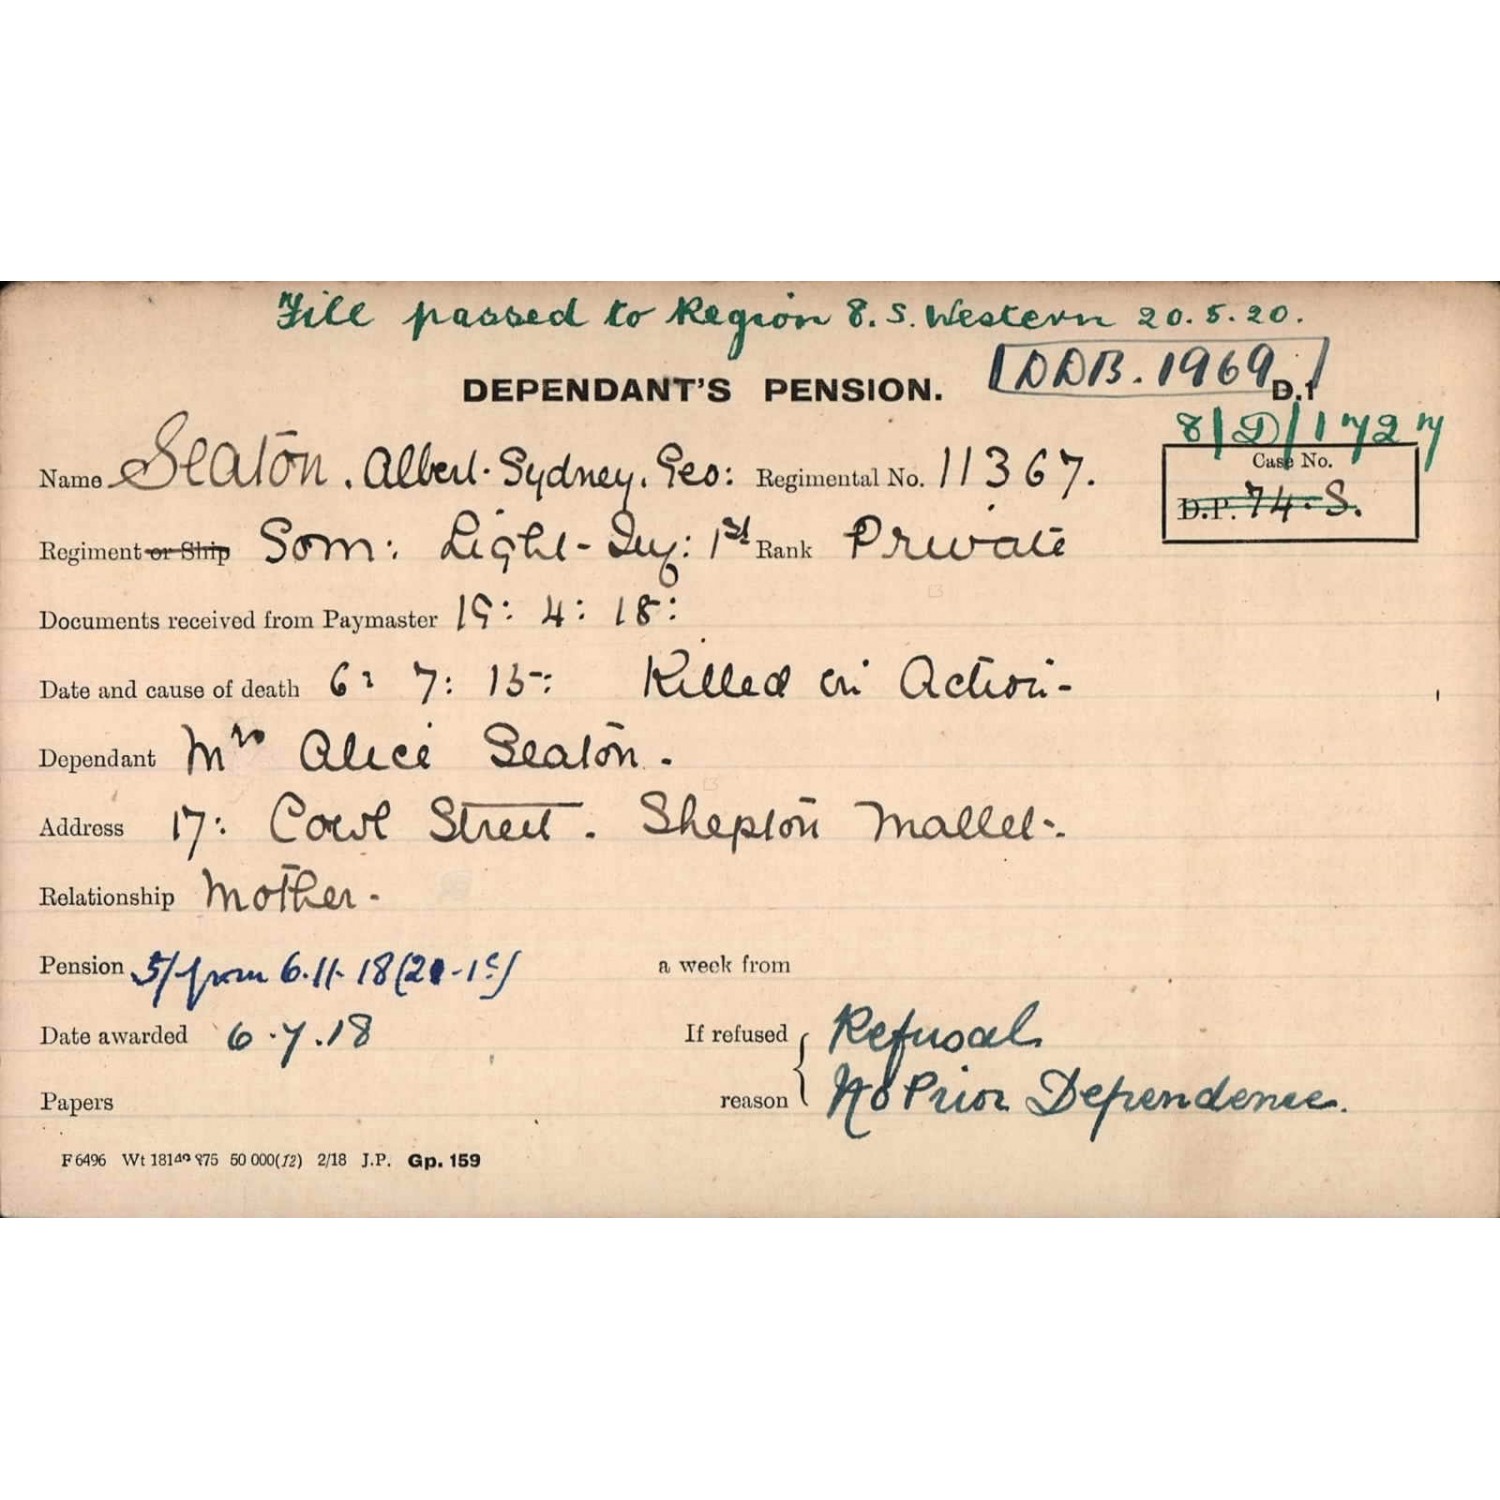 File passed to Region 8. S. Western 20.5.20.
DEPENDANT'S PENSION. DDB. 1969 D.1
8/D/1727
Name Seaton, Albert. Sydney. Geo: Regimental No. 11367.
Case No.
D.P. 74.S.
Regiment or Ship Som: Light-Iny: 1st Rank Private
Documents received from Paymaster 19: 4: 18:
Date and cause of death 6: 7: 15: Killed in Action-
Dependant Mrs Alice Seaton.
Address 17: Cowl Street. Shepton Mallet.
Relationship Mother-
Pension 5/- from 6.11.18 a week from
Date awarded 6.7.18 If refused reason { Refusal
Papers No Prior Dependence.
F 6496 Wt 50 000(12) 2/18 J.P. Gp. 159